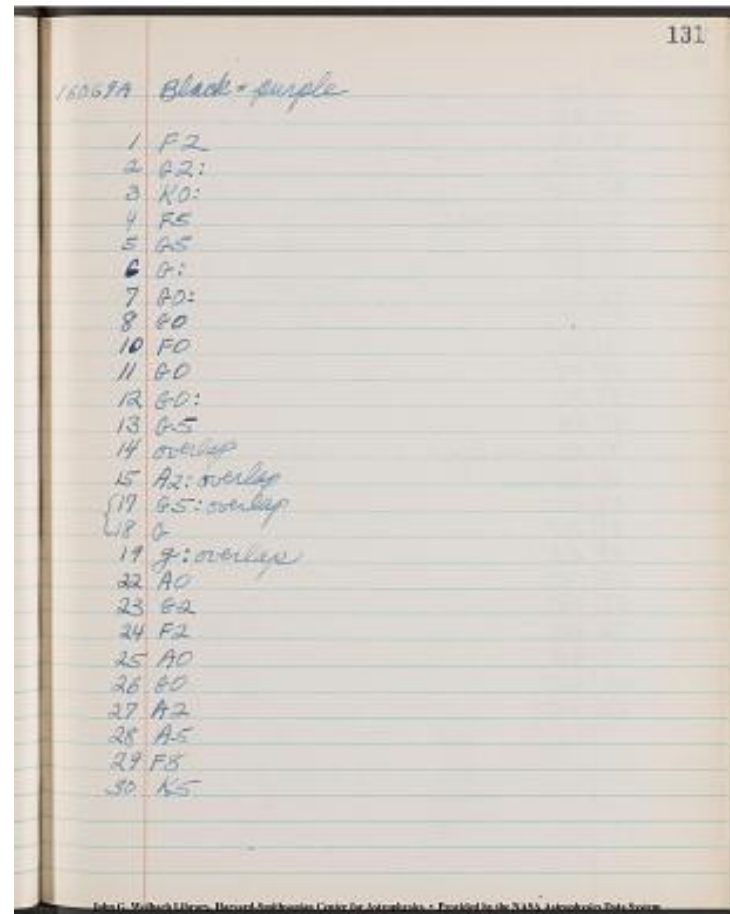 131
16069A Black = purple
1 F2
2 G2:
3 K0:
4 F5
5 G5
6 G:
7 G0:
8 G0
10 F0
11 G0
12 G0:
13 G5
14 overlap
15 A2: overlap
17 G5: overlap
18 G
19 g: overlap
22 A0
23 G2
24 F2
25 A0
26 G0
27 A2
28 A5
29 F8
30 K5
John G. Wolbach Library, Harvard-Smithsonian Center for Astrophysics • Provided by the NASA Astrophysics Data System